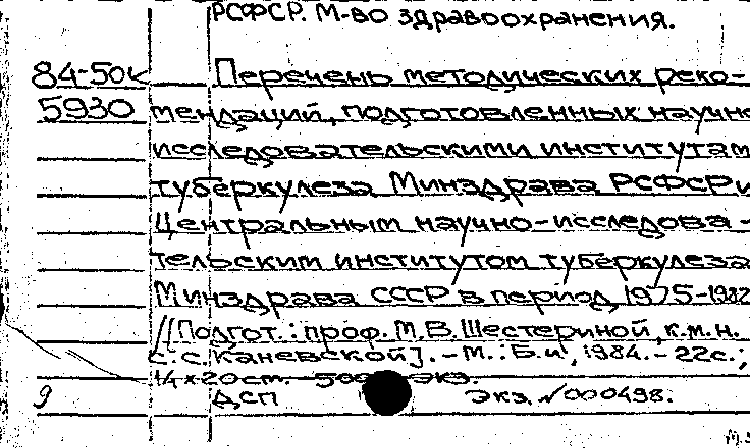 РСФСР. М-во здравоохранения.
84-50к Перечень методических реко-
5930 мендаций, подготовленных научно
исследовательскими институтам
туберкулеза Минздрава РСФСР и
Центральным научно-исследова-
тельским институтом туберкулеза
Минздрава СССР в период 1975-1982
/[Подгот.: проф. М.В. Шестериной, к.м.н.
С.С. Каневской]. - М.: Б.и., 1984. - 22с.;
14×20см. 500 экз.
9 ДСП экз. № 000498.